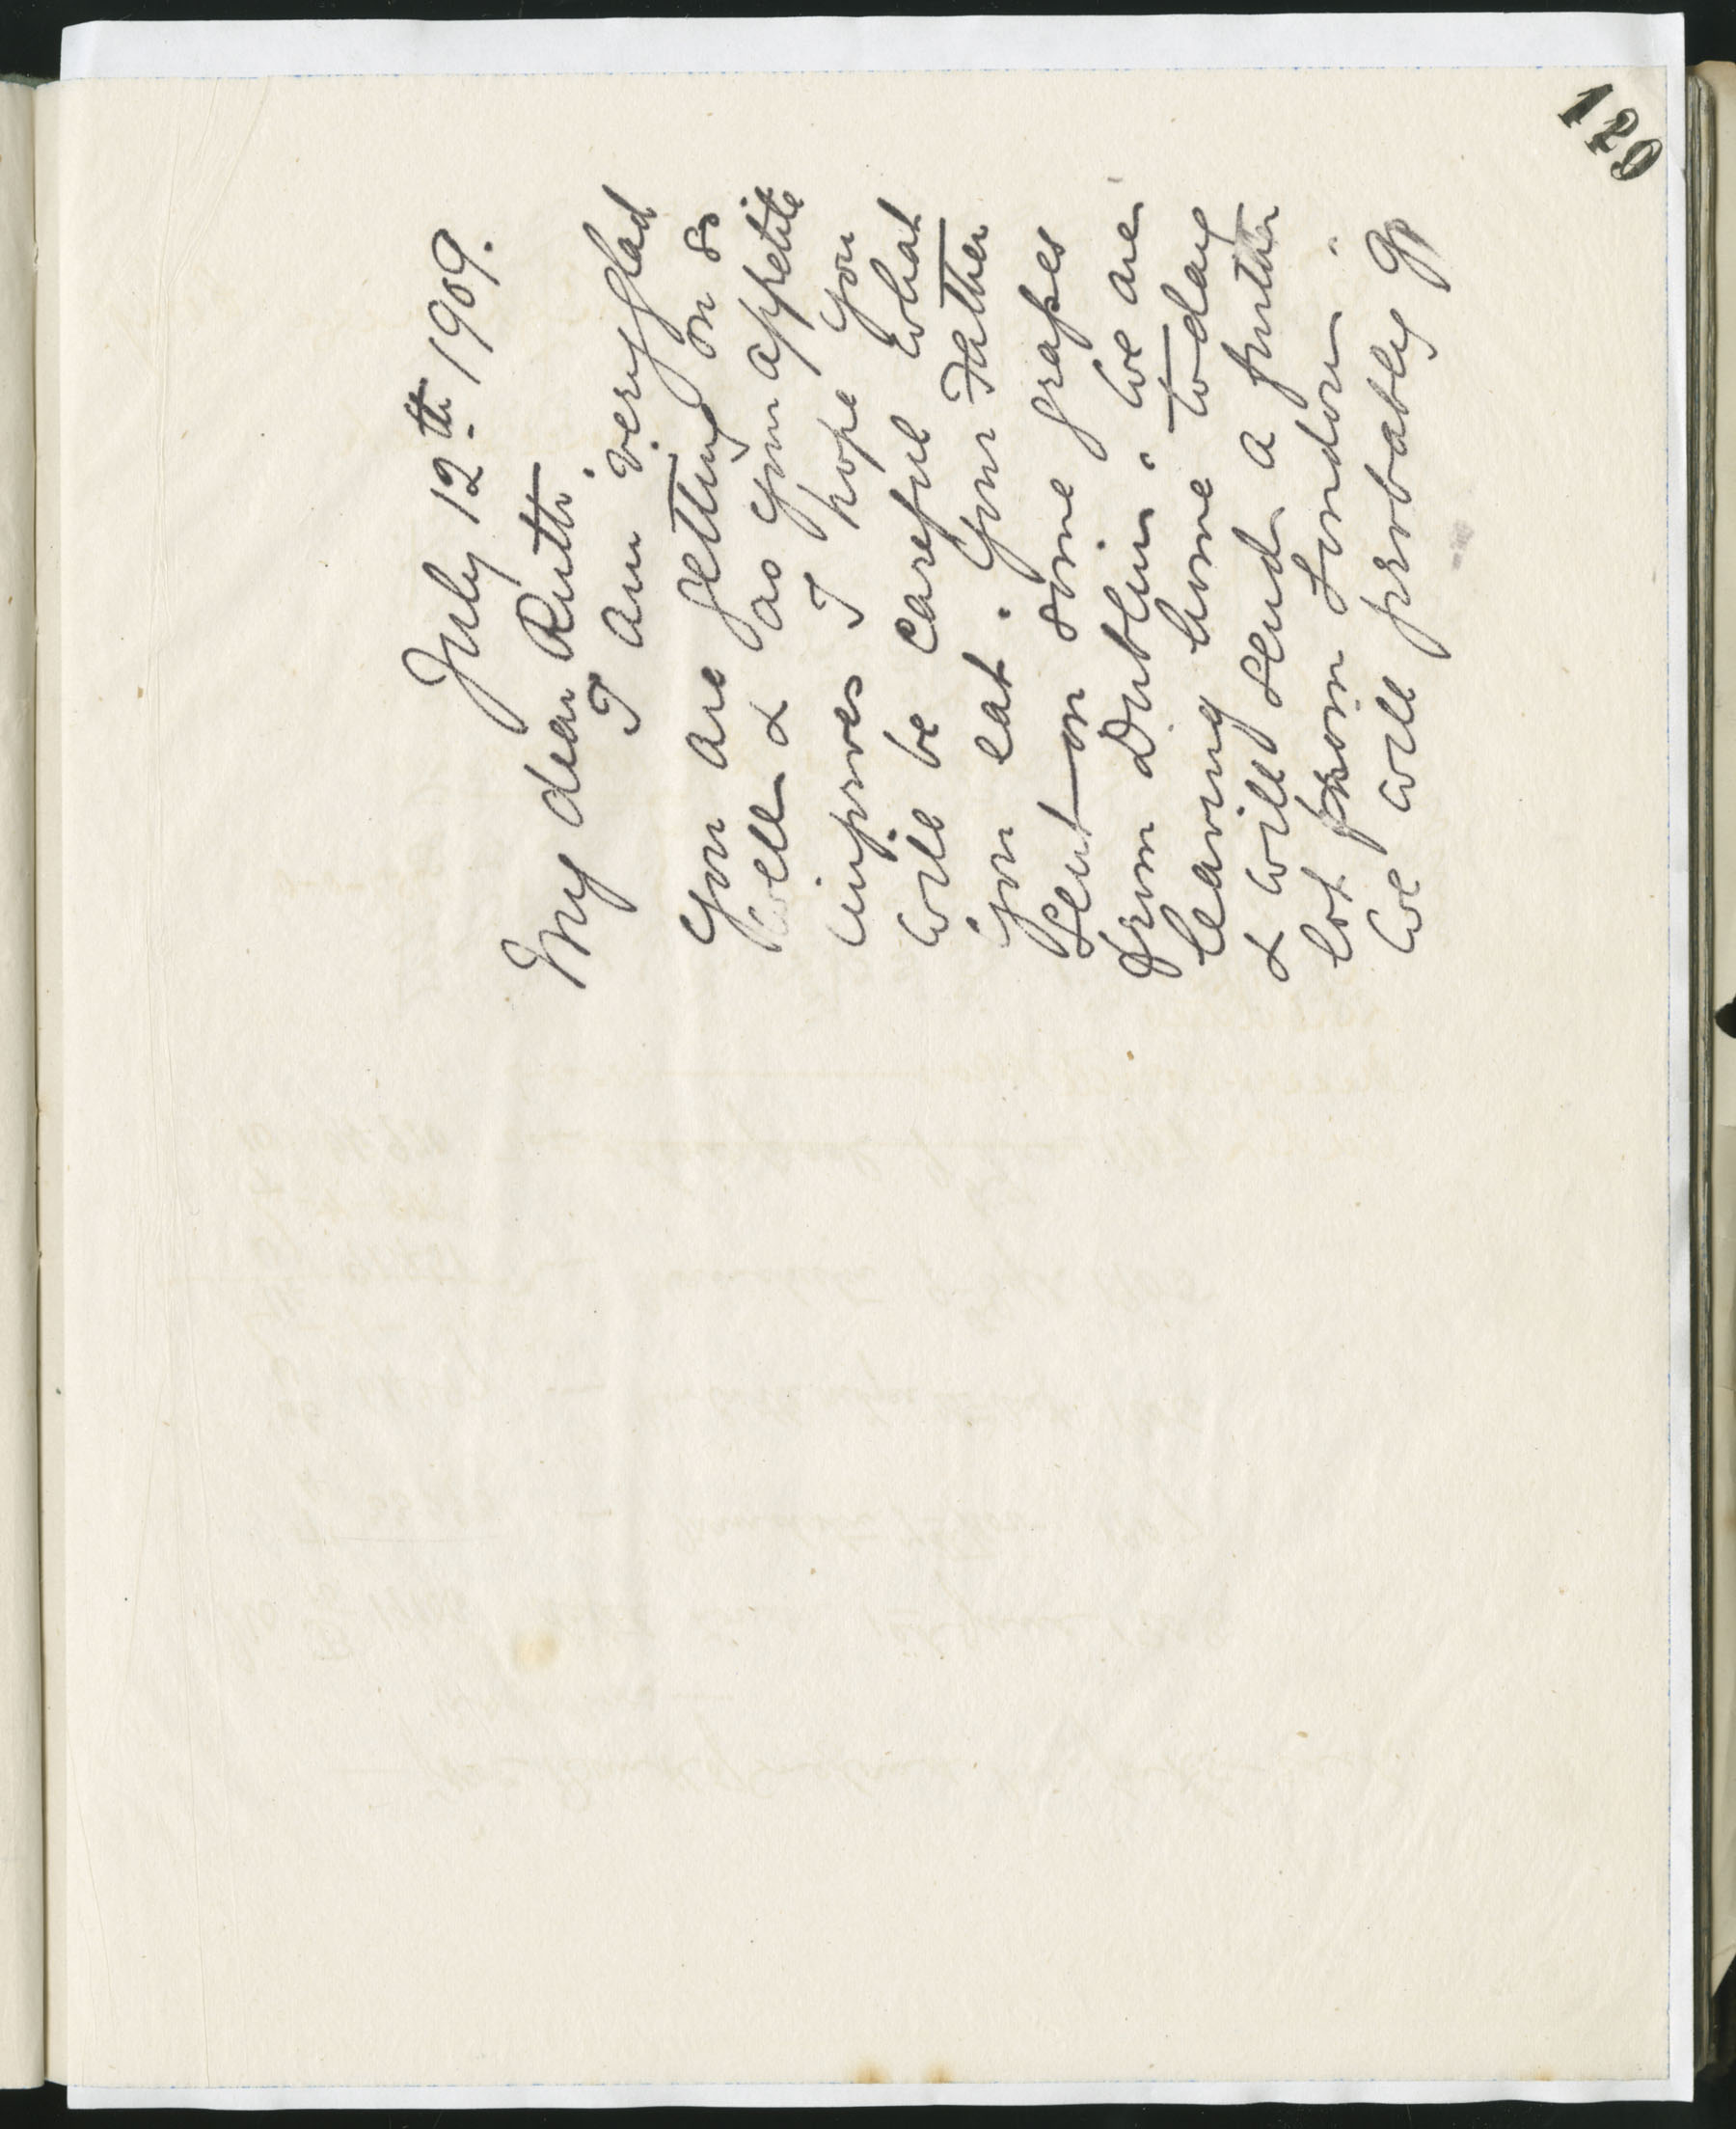 129
July 12th 1909.
My dear Ruth.
I am very glad
you are getting on so
well & as your appetite
improves I hope you
will be careful what
you eat. Your Father
sent on some grapes
from Dublin. We are
leaving home today
& will send a further
lot from London.
We will probably go